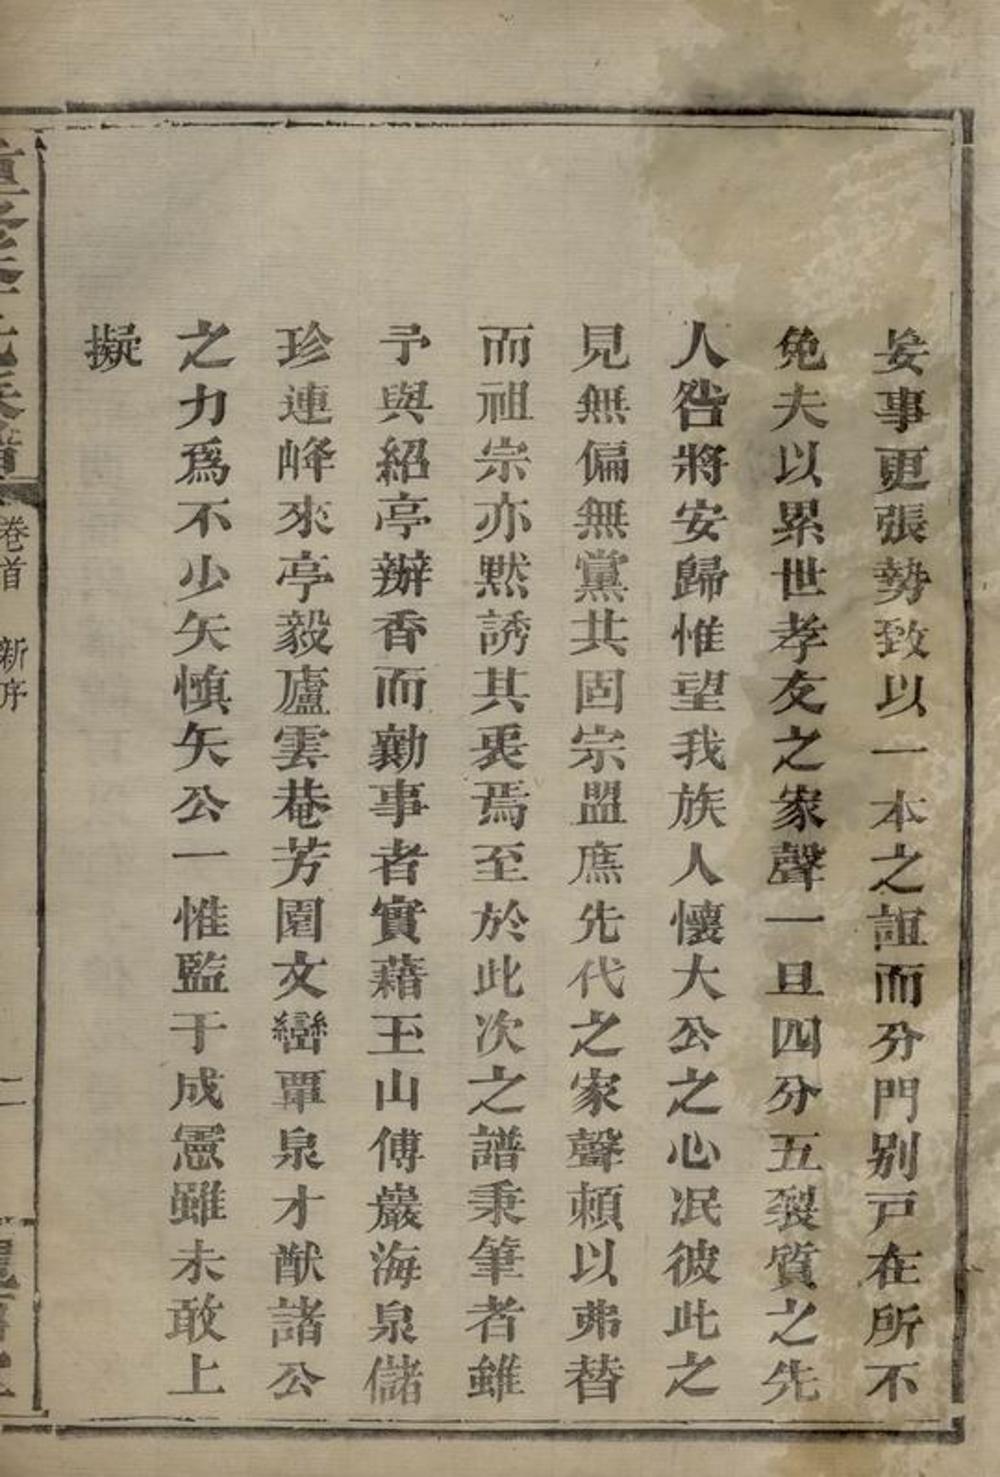 妄事更張勢致以一本之誼而分門别戸在所不
免夫以累世孝友之家聲一旦四分五裂質之先
人咎將安歸惟望我族人懷大公之心泯彼此之
見無偏無黨共固宗盟庶先代之家聲頼以弗替
而祖宗亦黙誘其衷焉至於此次之譜秉筆者雖
予與紹亭辦香而勷事者實藉玉山傅巖海泉儲
珍連峰來亭毅廬雲菴芳園文巒覃泉才猷諸公
之力爲不少矣慎矢公一惟監于成憲雖未敢上
擬
卷首 新序
二